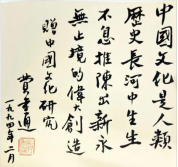 中國文化是人類
歷史長河中生生
不息推陳出新永
無止境的偉大創造
贈中國文化研究
費孝通
一九九四年二月